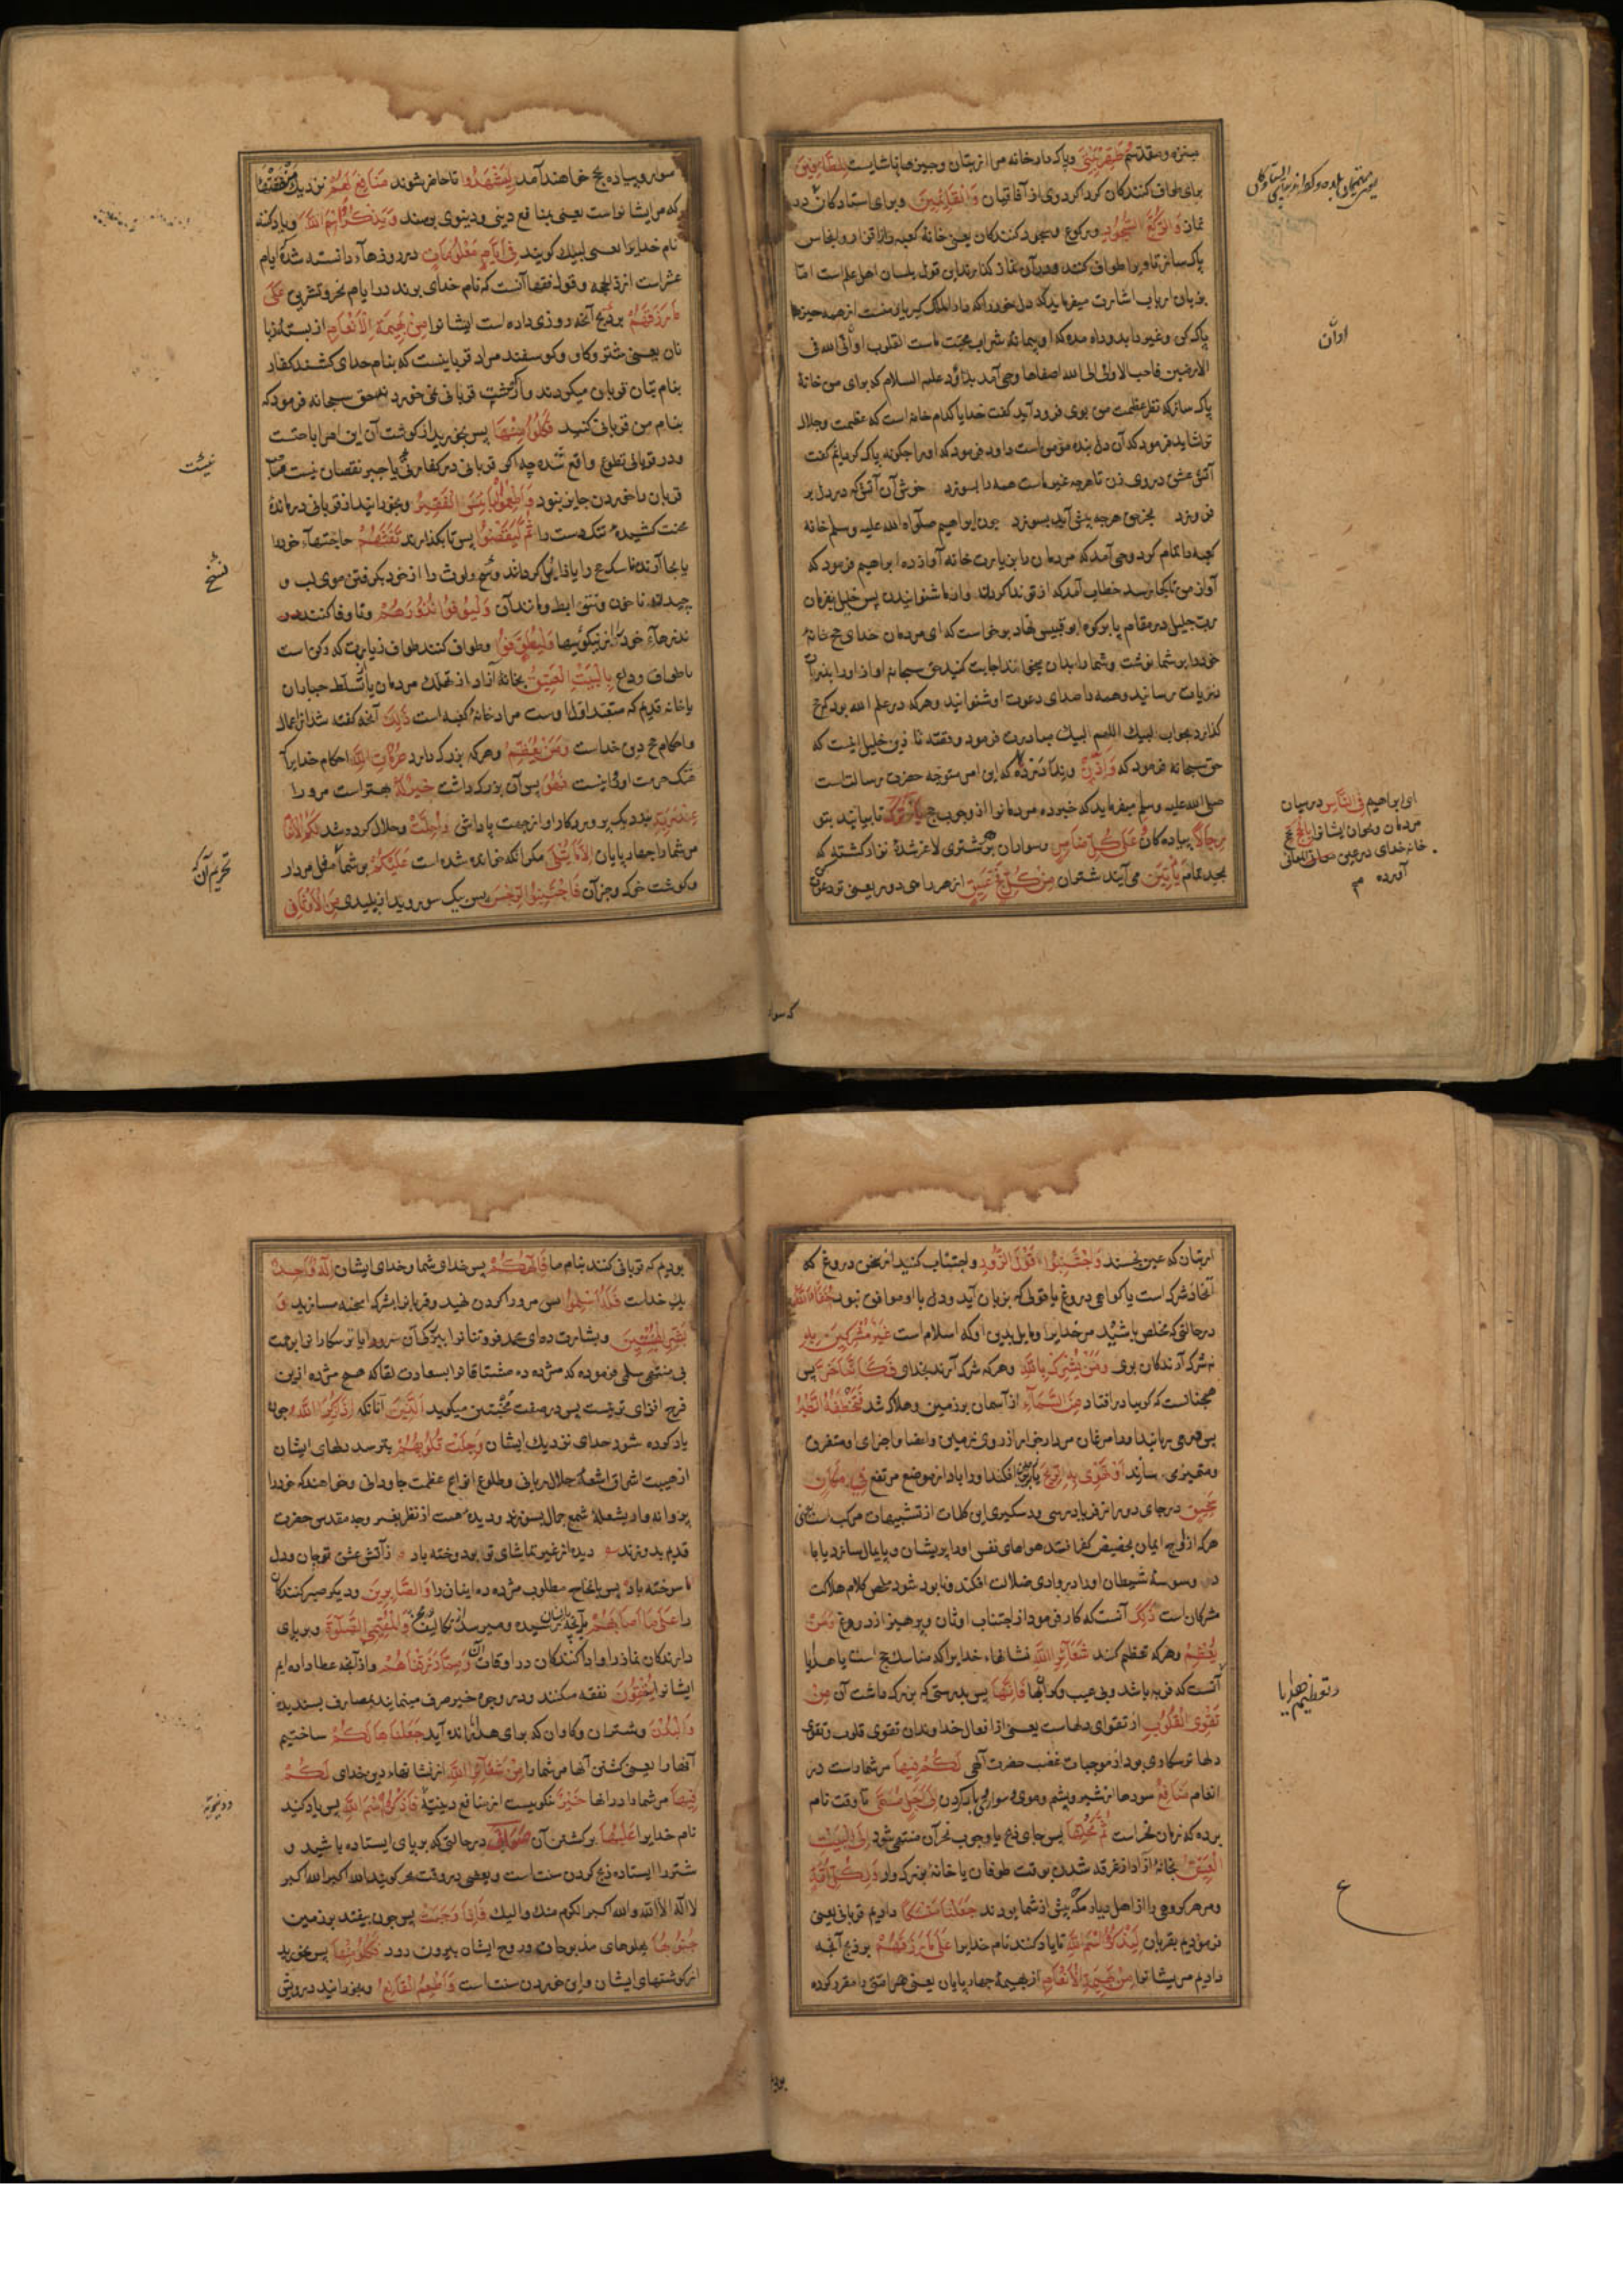 منزه و مقدسم طَهِّرْ بَيْتِيَ و پاک دار خانه مرا از بتان و چیزها ناشایست لِلطَّائِفِينَ
برای طواف کنندکان کرداکرد وی از آفاقیان وَالْقَائِمِينَ و برای استادکان در
نماز وَالرُّكَّعِ السُّجُودِ و رکوع و سجود کنندکان یعنی خانه کعبه را از اقذار و انجاس
پاک ساز تا و برا طواف کنند و در آن نماز کذارند این قول بلسان اهل علم است اما
بزبان ارباب اشارت میفرماید که دل خود را که دار الملک کبریای منست از همه چیزها
پاک کن و غیر را بدو راه مده که او پیمانه شراب محبت ماست القلوب اوانی الله فی
الارضین فاحب الاوانی الی الله اصفاها وحی آمد بداود علیه السلام که برای من خانه
پاک ساز که نظر عظمت من بوی فرود آید کفت خدایا کدام خانه است که عظمت و جلال
ترا شاید فرمود که آن دل بنده مؤمن است داود فرمود که او را چکونه پاک کردانم کفت
آتش عشق در وی زن تا هرچه غیر ماست همه را بسوزد خوش آن آتش که در دل بر
فروزد بجز حق هرچه پیش آید بسوزد چون ابراهیم صلواه الله علیه وسلم خانه
کعبه را تمام کرد وحی آمد که مردمان را بزیارت خانه آواز ده ابراهیم فرمود که
آواز من تا کجا برسد خطاب آمد که از تو ندا کردن و از ما شنوانیدن پس خلیل بفرمان
رب جلیل در مقام یا بر کوه ابو قبیس نهاد برخاست که ای مردمان خدای حج خانه
خود را بر شما نوشت و شما را بدان میخواند اجابت کنید حق سبحانه آواز او را بذرات
ذریات رسانید و همه را صدای دعوت او شنوانید و هرکه در علم الله بود که حج
کذارد بجواب لبیک اللهم لبیک مبادرت فرمود
حق سبحانه فرمود که وَأَذِّنْ و ندا در ده که این امر متوجه حضرت رسالت است
صلی الله علیه وسلم میفرماید که خبر ده مردمانرا از وجوب حج يَأْتُوكَ تا بیایند بتو
رِجَالًا پیاده کان وَعَلَىٰ كُلِّ ضَامِرٍ و سواران بر هر شتری لاغر شده نزار کشته که
يَأْتِينَ می آیند شتران مِنْ كُلِّ فَجٍّ عَمِيقٍ از هر راهی دور یعنی
اوان
ای ابراهیم فِي النَّاسِ در میان
مردمان و بخوان ایشانرا بِالْحَجِّ بحج
آورده
که سوار
سوار و پیاده بحج خواهند آمد لِيَشْهَدُوا تا حاضر شوند مَنَافِعَ لَهُمْ نزدیک منفعتها
که مر ایشانراست یعنی بمنافع دینی و دنیوی برسند وَيَذْكُرُوا اسْمَ اللَّهِ و یاد کنند
نام خدایرا یعنی لبیک کویند فِي أَيَّامٍ مَعْلُومَاتٍ در روزهاء دانسته شده ایام
عشر است از ذی الحجه و قول فقها آنست که نام خدای برند در ایام نحر و تشریق عَلَىٰ
مَا رَزَقَهُمْ بر ذبح آنچه روزی داده است ایشانرا مِنْ بَهِيمَةِ الْأَنْعَامِ از بسته زبا
نان یعنی شتر و کاو و کوسفند مراد قربانیست که بنام خدای کشند کفار
بنام بتان قربان میکردند و از کوشت قربانی نمی خوردند حق سبحانه فرمود که
بنام من قربانی کنید فَكُلُوا مِنْهَا پس بخورید از کوشت آن این امر اباحتست
و در قربانی تطوع واقع شده چه اکر قربانی در کفارتی یا جبر نقصان نیست
قربان را خوردن جایز نبود وَأَطْعِمُوا الْبَائِسَ الْفَقِيرَ و بخورانید از قربانی درمانده
محنت کشیده تنکدست را ثُمَّ لْيَقْضُوا پس تا بکذارند تَفَثَهُمْ حاجتهاء خود را
یا بجا آرند مناسک حج را یا زایل کردانند وسخ ولوث را از خود بکرفتن موی لب و
چیدن ناخون و نتف ابط و مانند آن وَلْيُوفُوا نُذُورَهُمْ و تا وفا کنند در
نذرهاء خود از نیکوئیها وَلْيَطَّوَّفُوا و طواف کنند طواف زیارت که رکن است
یا طواف وداع بِالْبَيْتِ الْعَتِيقِ بخانه آزاد از تملک مردمان یا تسلط جباران
یا خانه قدیم که متعبد اول اوست مراد خانه کعبه است ذَٰلِكَ آنچه کفته شد از اعمال
و احکام حج دین خداست وَمَنْ يُعَظِّمْ و هرکه بزرک دارد حُرُمَاتِ اللَّهِ احکام خدایرا
هتک حرمت او روا نیست فَهُوَ پس آن بزرک داشت خَيْرٌ لَهُ بهتر است مر او را
عِنْدَ رَبِّهِ نزدیک پروردکار او از جهت پاداش وَأُحِلَّتْ و حلال کرده شد لَكُمُ الْأَنْعَامُ
مر شما را چهارپایان إِلَّا مَا يُتْلَىٰ مکر آنکه خوانده شده است عَلَيْكُمْ بر شما مثل مردار
و کوشت خوک و جز آن فَاجْتَنِبُوا الرِّجْسَ پس یکسو روید از پلیدی مِنَ الْأَوْثَانِ
نسخ
تحریم آن که
از بتان که عین نجسند وَاجْتَنِبُوا قَوْلَ الزُّورِ و اجتناب کنید از سخن دروغ که
آنخاذ شرک است یا کواهی دروغ یا قولی که بزبان آید و دل با او موافق نبود حُنَفَاءَ لِلَّهِ
در حالتی که مخلص باشید مر خدایرا و مایل بدین او که اسلام است غَيْرَ مُشْرِكِينَ بِهِ
نه شرک آرندکان بوی وَمَنْ يُشْرِكْ بِاللَّهِ و هرکه شرک آرد بخدای فَكَأَنَّمَا خَرَّ پس
همچنانست که کوییا در افتاد مِنَ السَّمَاءِ از آسمان بر زمین و هلاک شد فَتَخْطَفُهُ الطَّيْرُ
پس میربایند او را مرغان مردارخوار از روی زمین و اعضا و اجزای او متفرق
و متمیزی سازند أَوْ تَهْوِي بِهِ الرِّيحُ یا افکند او را باد از موضع مرتفع فِي مَكَانٍ
سَحِيقٍ در جای دور از فریادرسی و دستکیری این کلمات از تشبیهات مرکب است یعنی
هرکه از اوج ایمان بحضیض کفر افتد هواهای نفس او را پریشان و پایمال سازد یا باد
وسوسه شیطان او را در وادی ضلالت افکند و نابود شود ملخص کلام هلاکت
مشرکان است ذَٰلِكَ آنست که کار فرمود از اجتناب اوثان و پرهیز از دروغ وَمَنْ
يُعَظِّمْ و هرکه تعظیم کند شَعَائِرَ اللَّهِ نشانهاء خدایرا که مناسک حج است یا هدایا
آنست که فربه باشد و بی عیب و کرانبها فَإِنَّهَا پس بدرستی که بزرک داشت آن مِنْ
تَقْوَى الْقُلُوبِ از تقوای دلهاست یعنی از افعال خداوندان تقوی قلوب و تقوی
دلها ترسکاری بود از موجبات غضب حضرت آلهی لَكُمْ فِيهَا مر شما راست در
انعام مَنَافِعُ سودها از شیر و پشم و موی و سواری و بار کردن إِلَىٰ أَجَلٍ مُسَمًّى تا وقت نام
برده که زمان نحر است ثُمَّ مَحِلُّهَا پس جای ذبح یا وجوب نحر آن منتهی شود إِلَى الْبَيْتِ
الْعَتِيقِ بخانه آزاد از غرقه شدن بوقت طوفان یا خانه بزرکوار وَلِكُلِّ أُمَّةٍ
و مر هر کروهی را از اهل پیش از شما بودند جَعَلْنَا مَنْسَكًا دادیم قربانی یعنی
فرمودیم بقربان لِيَذْكُرُوا اسْمَ اللَّهِ تا یاد کنند نام خدایرا عَلَىٰ مَا رَزَقَهُمْ بر ذبح آنچه
دادیم مر ایشانرا مِنْ بَهِيمَةِ الْأَنْعَامِ از بهیمه چهارپایان یعنی هر امتی را مقرر کرده
و تعظیم هدایا
ع
بودیم
بودیم که قربانی کنند بنام ما فَإِلَٰهُكُمْ پس خدای شما و خدای ایشان إِلَٰهٌ وَاحِدٌ
یک خداست فَلَهُ أَسْلِمُوا پس مر او را کردن نهید و قربانرا بشرک آمیخته مسازید وَ
بَشِّرِ الْمُخْبِتِينَ و بشارت ده ای محمد فروتنانرا ترسکارانرا برحمت
بی منتهی سلمی فرموده که مژده ده مشتاقانرا بسعادت لقا که هیچ مژده ازین
فرح افزای تر نیست پس در صفت مخبتین میکوید الَّذِينَ آنانکه إِذَا ذُكِرَ اللَّهُ چون
یاد کرده شود خدای نزدیک ایشان وَجِلَتْ قُلُوبُهُمْ بترسد دلهای ایشان
از هیبت اشراق اشعه جلال ربانی و طلوع انواع عظمت جاودانی و خواهند که خود را
پروانه وار بشعله شمع جمال بسوزند و دیده همت از نظر بغیر وجه مقدس حضرت
قدیم بدوزند دیده از غیر تماشای تو بردوخته باد ز آتش عشق تو جان و دل
ما سوخته باد پس بانجاح مطلوب مژده ده اینان را وَالصَّابِرِينَ و دیکر صبرکنندکان
را عَلَىٰ مَا أَصَابَهُمْ بر آنچه بدیشان رسیده و میرسد از تکالیف وَالْمُقِيمِي الصَّلَاةِ و برپای
دارندکان نماز را و اداکنندکان در اوقات آن وَمِمَّا رَزَقْنَاهُمْ و از آنچه عطا داده ایم
ایشانرا يُنْفِقُونَ نفقه میکنند و در وجوه خیر صرف مینمایند بمصارف پسندیده
وَالْبُدْنَ و شتران و کاوان که برای هدی رانده آید جَعَلْنَاهَا لَكُمْ ساختیم
آنها را یعنی کشتن آنها مر شما را مِنْ شَعَائِرِ اللَّهِ از نشانهاء دین خدای لَكُمْ
فِيهَا مر شما را در آنها خَيْرٌ نیکوییست از منافع دینیه فَاذْكُرُوا اسْمَ اللَّهِ پس یاد کنید
نام خدایرا عَلَيْهَا بر کشتن آن صَوَافَّ در حالتی که برپای ایستاده باشید و
شتر را ایستاده ذبح کردن سنت است و بعضی در وقت نحر کویند الله اکبر الله اکبر
لا اله الا الله والله اکبر اللهم منک والیک فَإِذَا وَجَبَتْ پس چون بیفتد بر زمین
جُنُوبُهَا پهلوهای مذبوحان و روح ایشان بیرون رود فَكُلُوا مِنْهَا پس بخورید
از کوشتهای ایشان و این خوردن سنت است وَأَطْعِمُوا الْقَانِعَ و بخورانید درویش
و دنیویه